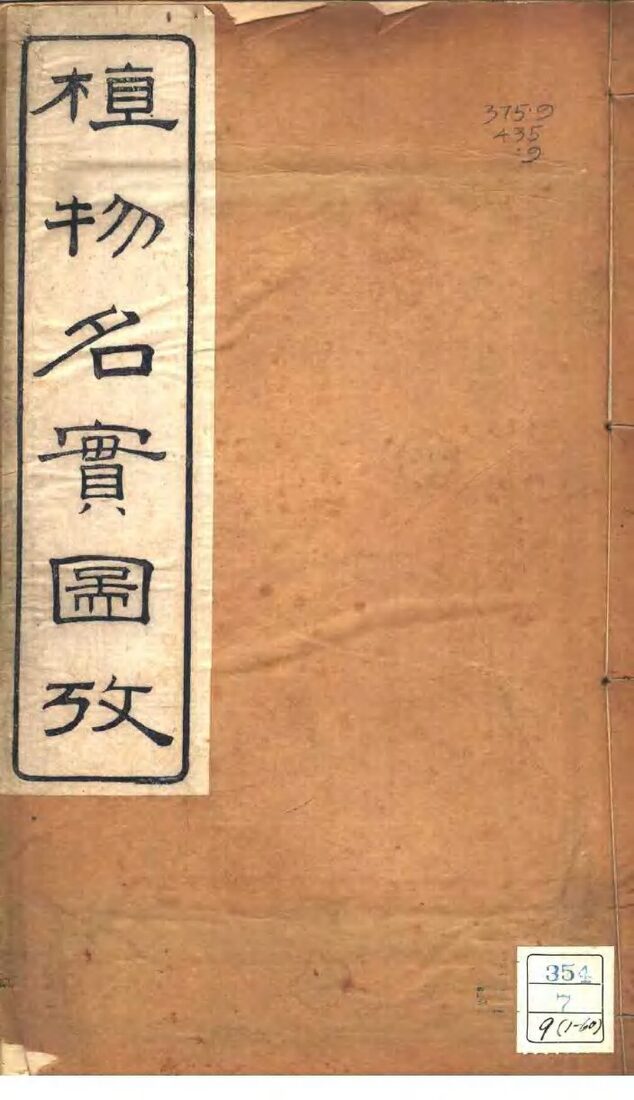 植物名實圖攷
375.9
435
.9
354
7
9(1-60)